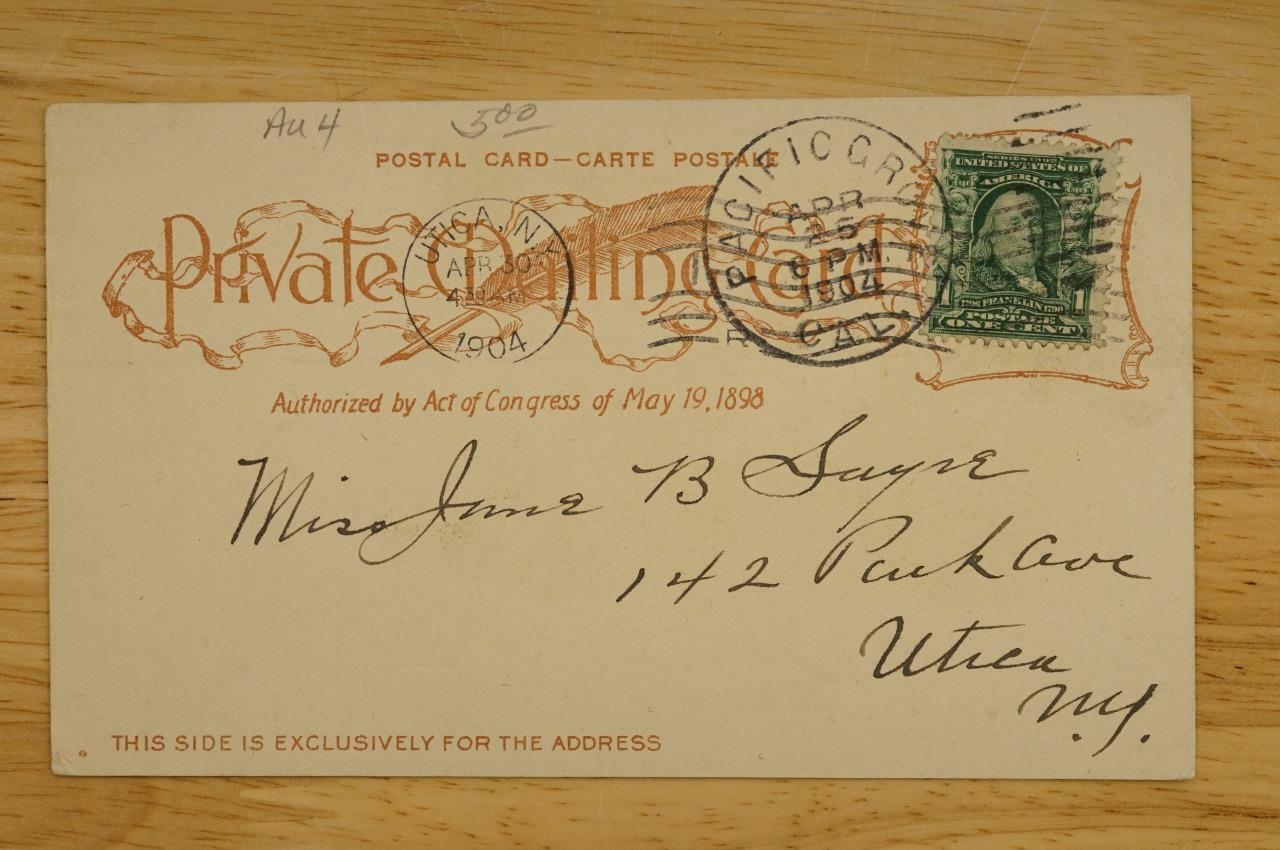 Au 4 5.00
POSTAL CARD—CARTE POSTALE
Private Mailing Card.
UTICA, N.Y.
APR 30
4 30 AM
1904
PACIFIC GROVE
APR
25
6 PM
1904
CAL.
SERIES 1902
UNITED STATES OF
AMERICA
1706 FRANKLIN 1790
1 1
POSTAGE
ONE CENT
Authorized by Act of Congress of May 19, 1898
Miss Jane B Sayre
142 Park Ave
Utica
N.Y.
THIS SIDE IS EXCLUSIVELY FOR THE ADDRESS